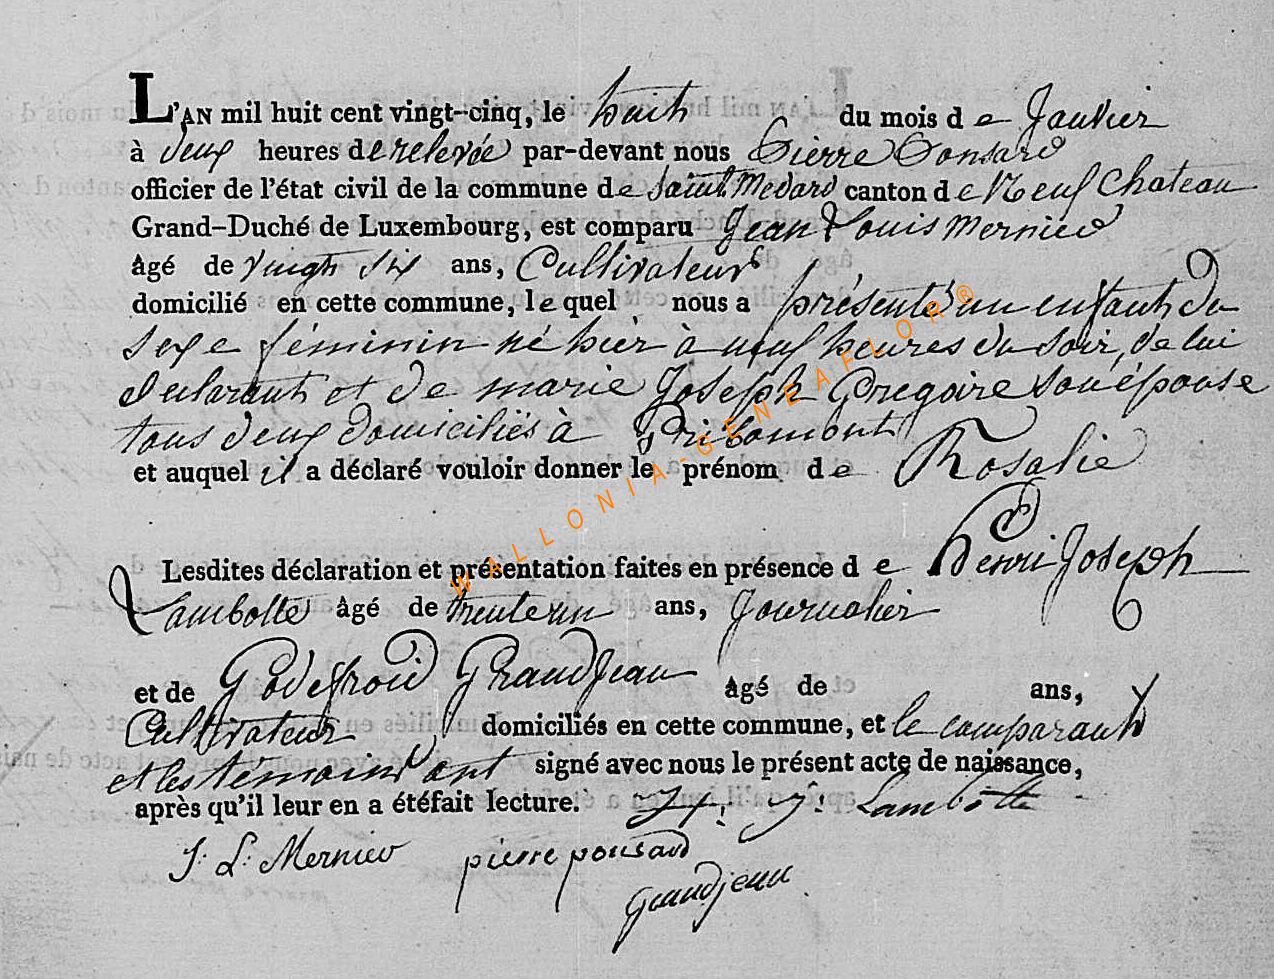 L'AN mil huit cent vingt-cinq, le huit du mois de Janvier
à deux heures de relevée par-devant nous Pierre Ponsard
officier de l'état civil de la commune de Saint Medard canton de Neufchateau
Grand-Duché de Luxembourg, est comparu Jean Louis Mernier
âgé de vingt six ans, Cultivateur
domicilié en cette commune, lequel nous a présenté un enfant du
sexe féminin né hier à neuf heures du soir, de lui
declarant et de marie Joseph Gregoire son épouse
tous deux domiciliés à Pribomont
et auquel il a déclaré vouloir donner le prénom de Rosalie
Lesdites déclaration et présentation faites en présence de Henri Joseph
Lambotte âgé de trente un ans, Journalier
et de Godefroid Grandjean âgé de ans,
Cultivateur domiciliés en cette commune, et le comparant
et les témoins ont signé avec nous le présent acte de naissance,
après qu'il leur en a étéfait lecture. H. J. Lambotte
J. L. Mernier pierre ponsard
Grandjean
WALLONIA-GENEAFLOR®